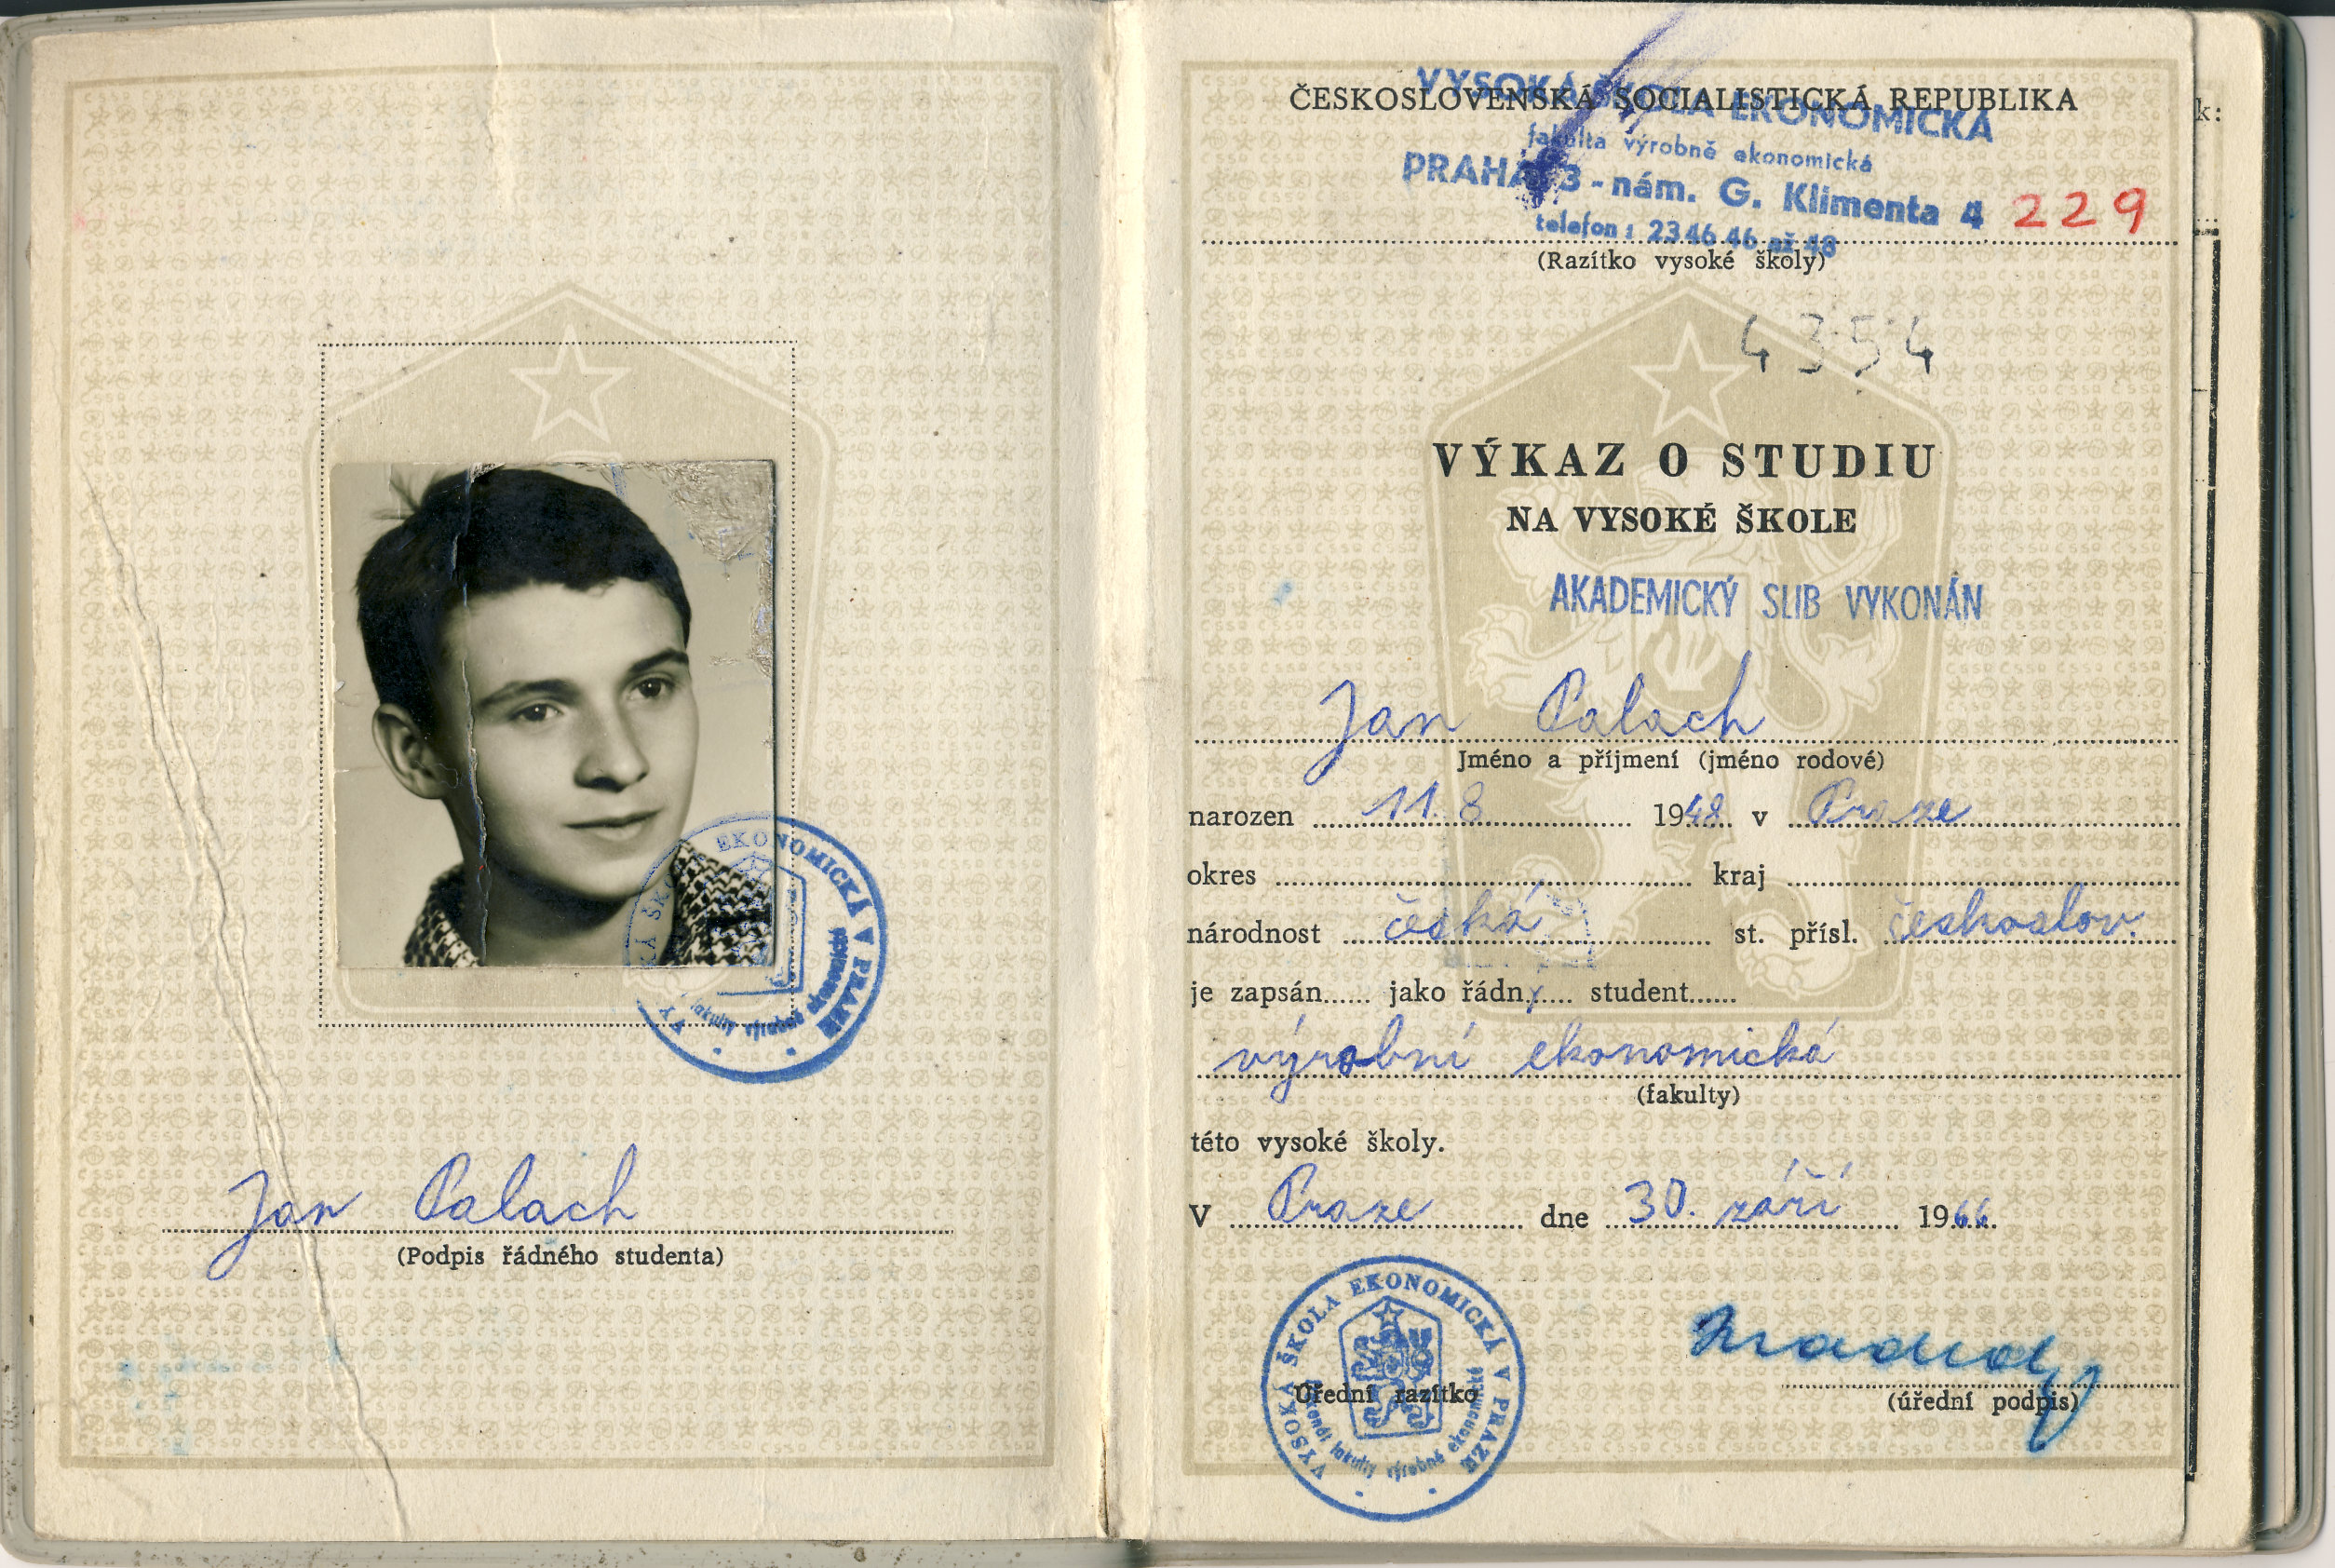 EKONOMICKÁ V PRAZE
fakulty výrobně ekonomické
Jan Palach
(Podpis řádného studenta)
ČESKOSLOVENSKÁ SOCIALISTICKÁ REPUBLIKA
VYSOKÁ ŠKOLA EKONOMICKÁ
fakulta výrobně ekonomická
PRAHA 3 - nám. G. Klimenta 4 229
telefon: 23 46 46 až 48
(Razítko vysoké školy)
4354
VÝKAZ O STUDIU
NA VYSOKÉ ŠKOLE
AKADEMICKÝ SLIB VYKONÁN
Jan Palach
Jméno a příjmení (jméno rodové)
narozen 11. 8 1948 v Praze
okres kraj
národnost česká st. přísl. českoslov.
je zapsán jako řádný student
výrobní ekonomická
(fakulty)
této vysoké školy.
V Praze dne 30. září 1966.
VYSOKÁ ŠKOLA EKONOMICKÁ V PRAZE
děkanát fakulty výrobně ekonomické
Úřední razítko
(úřední podpis)
k: